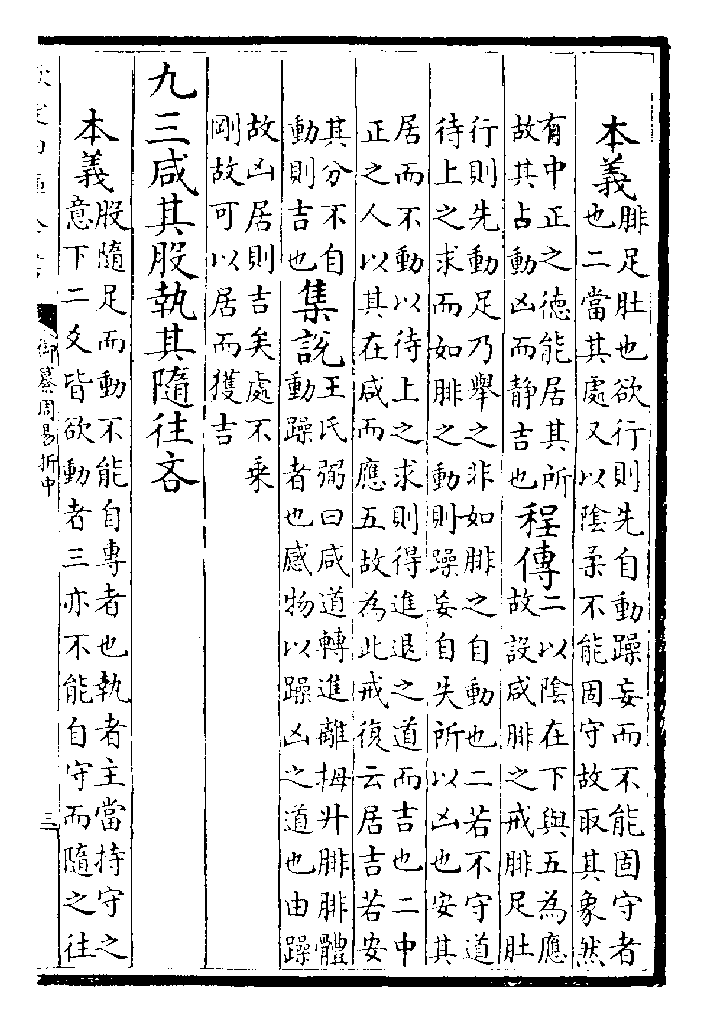 本義腓足肚也欲行則先自動躁妄而不能固守者
也二當其處又以陰柔不能固守故取其象然
有中正之徳能居其所
故其占動凶而静吉也
程傳二以陰在下與五為應
故設咸腓之戒腓足肚
行則先動足乃舉之非如腓之自動也二若不守道
待上之求而如腓之動則躁妄自失所以凶也安其
居而不動以待上之求則得進退之道而吉也二中
正之人以其在咸而應五故為此戒復云居吉若安
其分不自
動則吉也
集說王氏弼曰咸道轉進離拇升腓腓體
動躁者也感物以躁凶之道也由躁
故凶居則吉矣處不乗
剛故可以居而獲吉
九三咸其股執其隨往吝
本義股隨足而動不能自專者也執者主當持守之
意下二爻皆欲動者三亦不能自守而隨之往
御纂周易折中
三